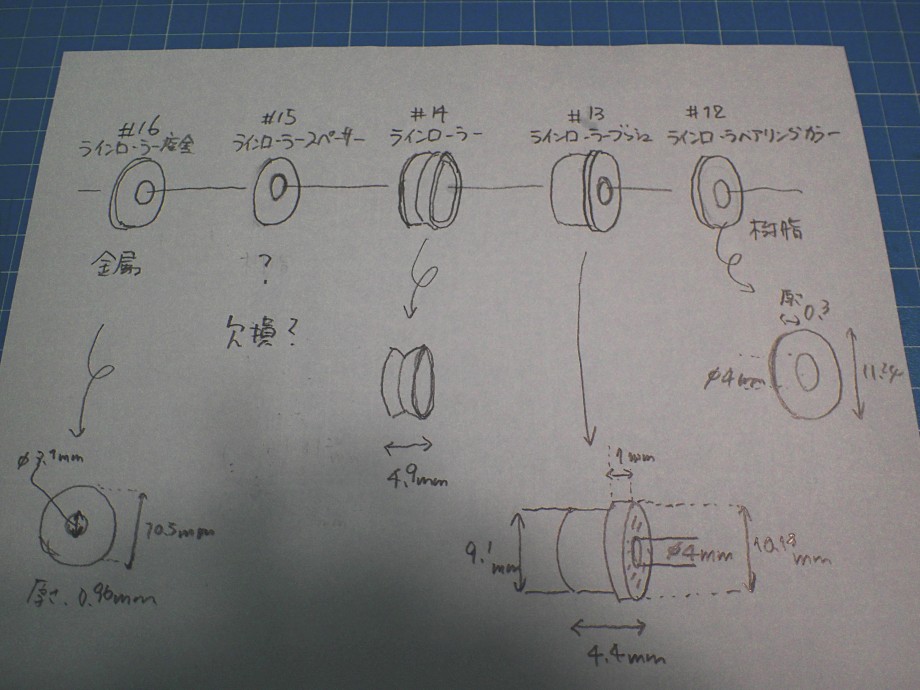 #16
ラインローラー座金
#15
ラインローラースペーサー
#14
ラインローラー
#13
ラインローラーブッシュ
#12
ラインローラベアリングカラー
金属
?
欠損?
樹脂
厚 0.3
φ4mm
φ3.9mm
10.5mm
厚さ. 0.96mm
4.9mm
1mm
9.1mm
φ4mm
mm
4.4mm